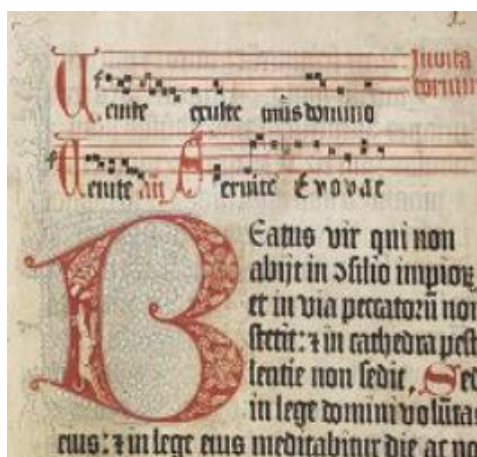 Inuita
Uenite exulte mus domino
torium
Uenite añ Seruite Euouae
Beatus vir qui non
abijt in ɔsilio impioꝝ
et in via peccatoꝝ non
stetit: ⁊ in cathedra pest
lentie non sedit, Sed
in lege domini volūtas
eius: ⁊ in lege eius meditabitur die ac no